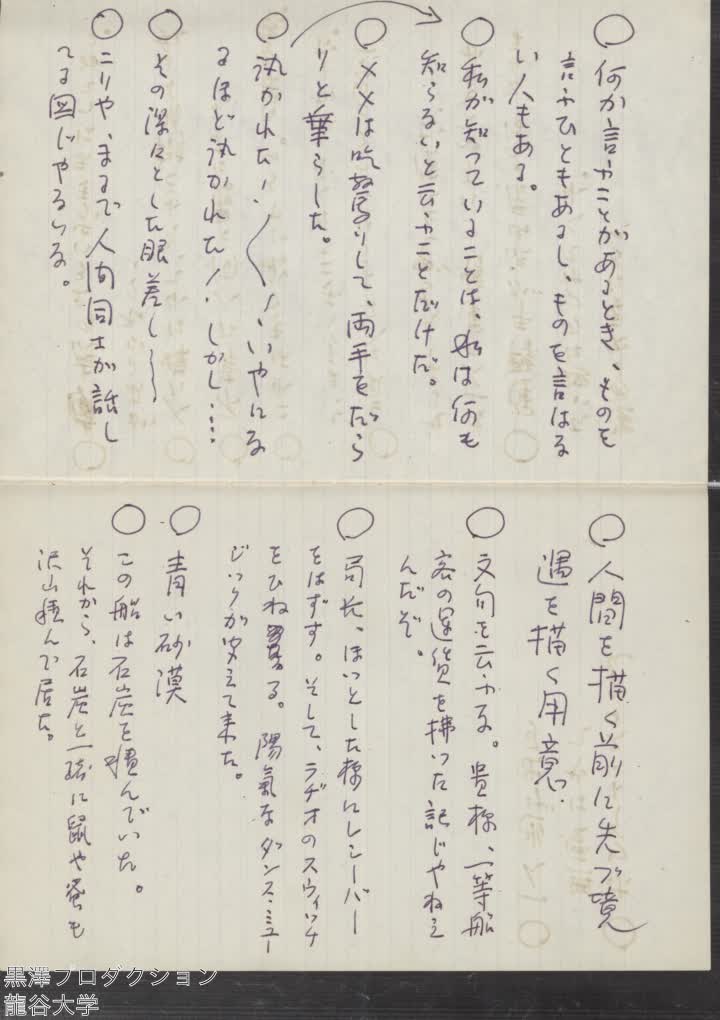 ○ 何か言ふことがあるとき、ものを
言ふひともあるし、ものを言はな
い人もある。
○ 私が知つていることは、私は何も
知らないと云ふことだけだ。
○ メメは吃驚りして、両手をだら
りと垂らした。
○
るほど
○ その深々とした眼差し——
○ こりや、まるで人間同士が話し
てる図じやないな。
○ 人間を描く前に先づ境
遇を描く用意。
○ 文句を云ふな。貴様、一等船
客の運賃を拂つた訳じやねえ
んだぞ。
○ 司長、ほつとした様にレシーバー
をはずす。そして、ラヂオのスウィッチ
をひねる。陽氣なダンス・ミュー
ジックが聞えて来た。
○ 青い砂漠
○ この船は石炭を積んでいた。
それから、石炭と一緒に鼠や蚤も
沢山積んで居た。
黒澤プロダクション
龍谷大学